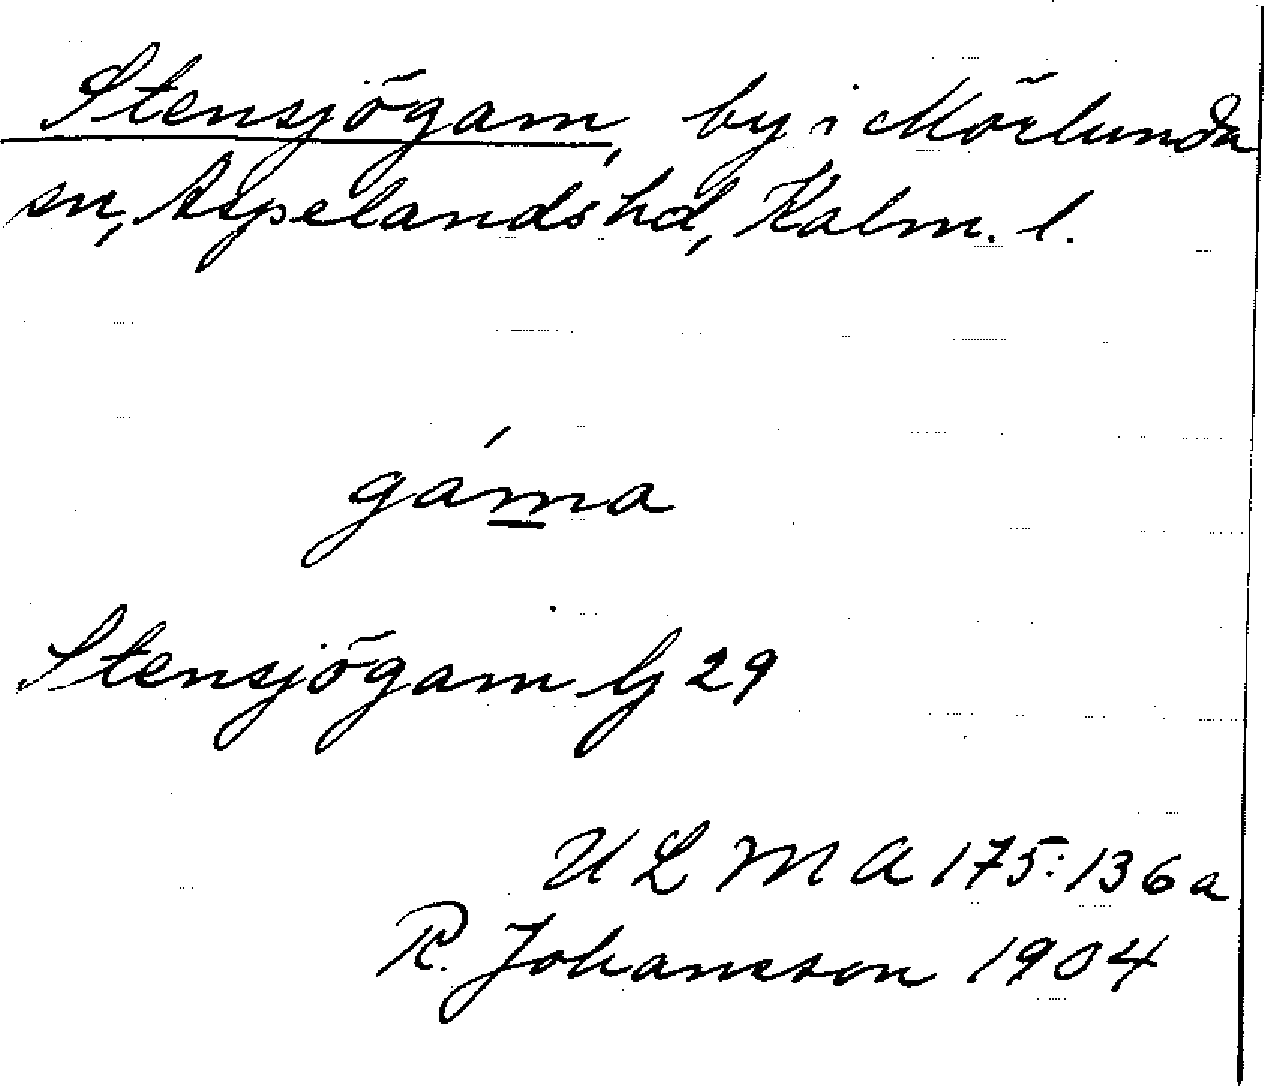 Stensjögam, by i Mörlunda
sn, Aspelands hd, Kalm. l.
gáma
Stensjögam G 29
U L M A 175:136a
R. Johansson 1904